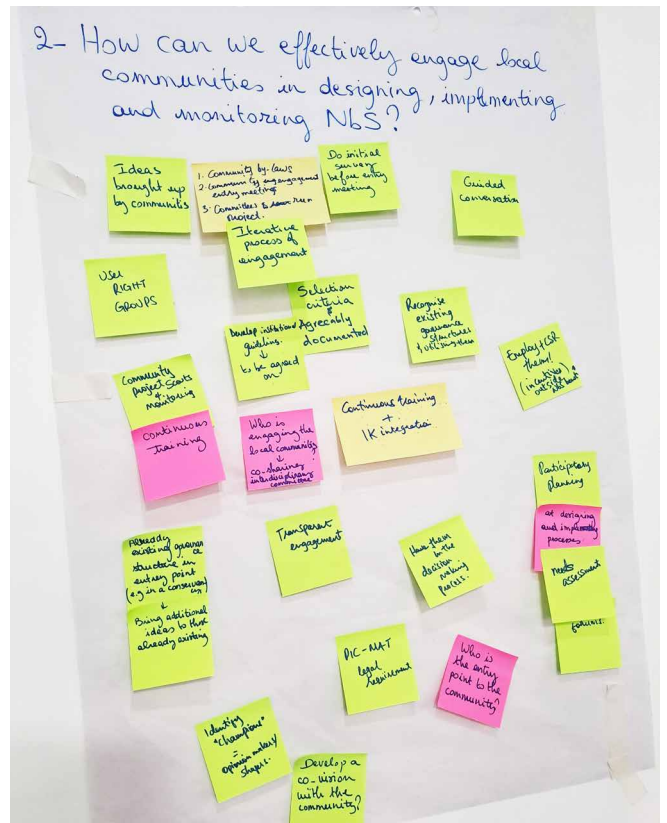 2- How can we effectively engage local
communities in designing, implementing
and monitoring NbS?
Ideas
brought up
by communities
1. Community by-laws
2. Community engagement
entry meeting
3. Committees to run
project.
Do initial
survey
before entry
meeting
Guided
Conversation
Iterative
process of
engagement
User
RIGHT
GROUPS
Selection
criteria
Agreeably
documented
Develop institutional
guideline.
↓
to be agreed
on
Recognise
existing
governance
structures
& utilising them
Employ + CSR
them!
(incentives)
outside
Community
Project Scouts
& monitoring
continuous
training
Who is
engaging the
local communities
↓
co-sharing
interdisciplinary
committee
Continuous training
+
IK integration
Participatory
planning
at designing
and implementing
processes.
needs
assessment
forums.
Already
existing governance
structure in
entry point
(e.g in a
↓
Bring additional
ideas to those
already existing
Transparent
engagement
Have them
in the
decision
making
process.
PIC-MAT
legal
requirement
Who is
the entry
point to the
community?
Identify
"champions"
=
opinion makers/
shapers.
Develop a
co-vision
with the
community?